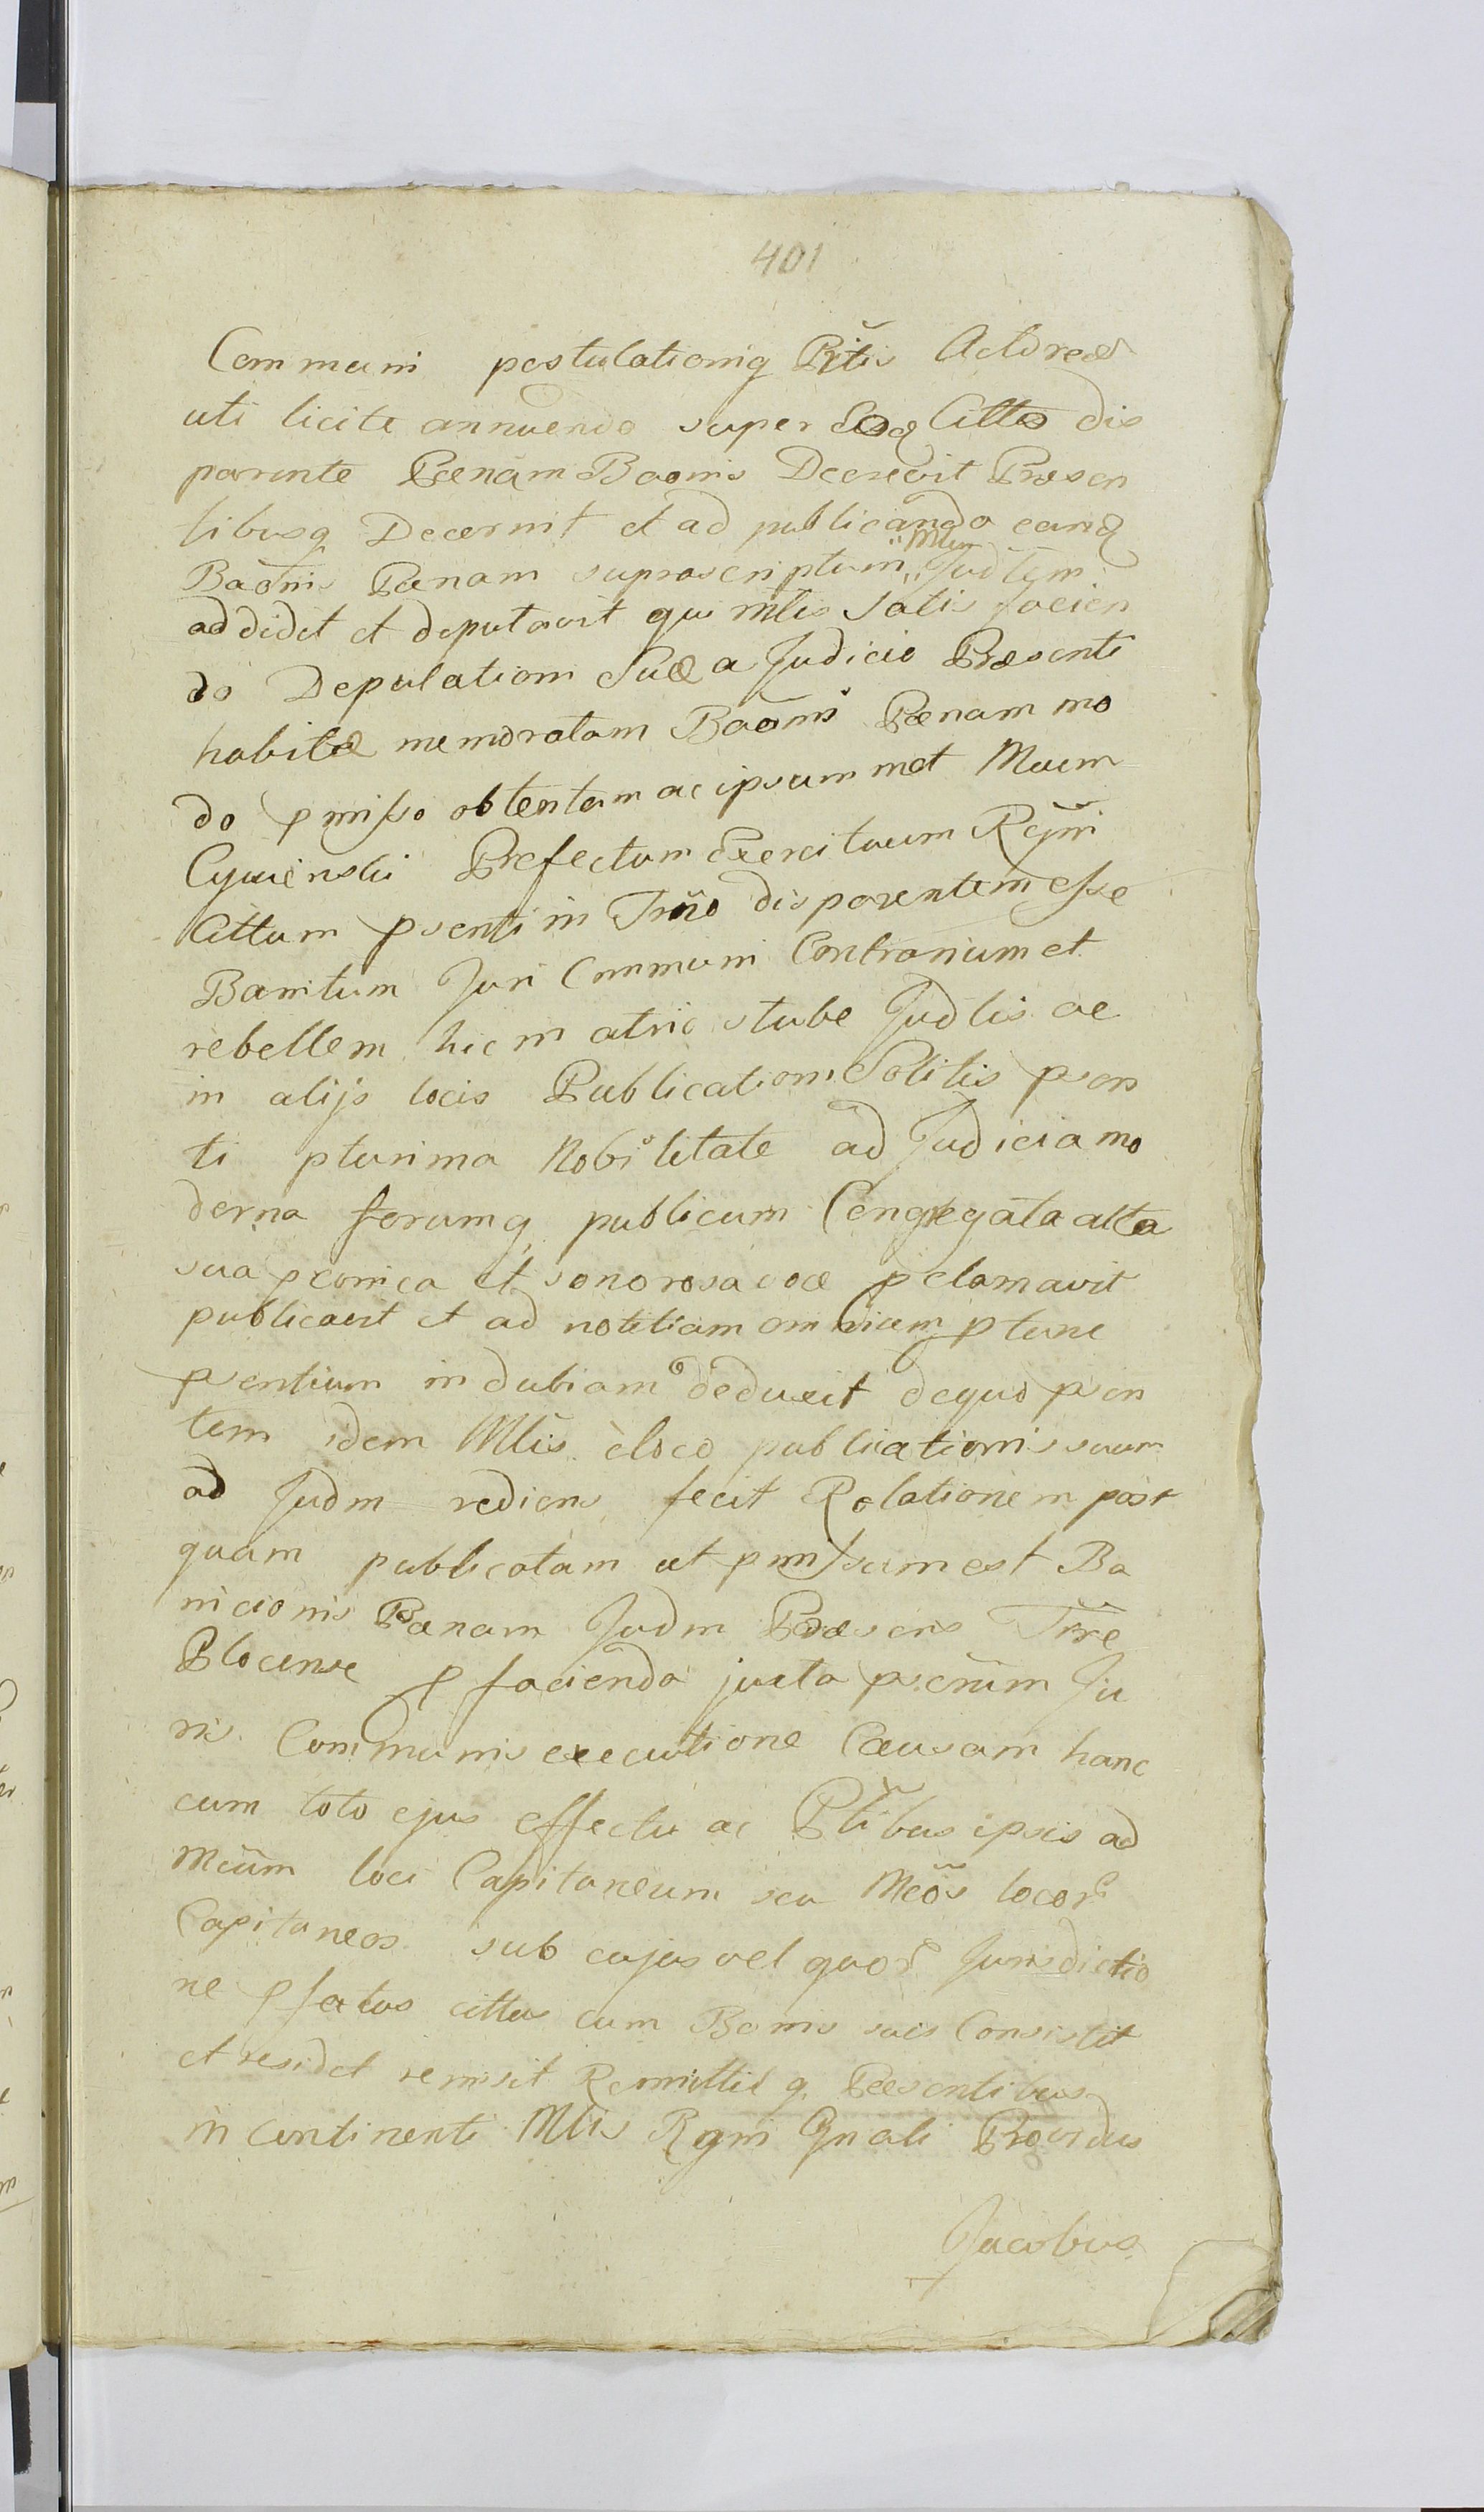 401
Communi postulationiq Ptis Actoreæ
uti licite annuendo super Eodq Citto dis
parente Pænam Baonis Decrevit Præsen
tibusq Decernit et ad publicando eandq
Baonis Pænam suprascriptum Mlem Judlem
addidit et deputavit qui Mlis Satis facien
do Deputationi Suæ a Judicio Præsenti
habitæ memoratam Baonis Pænam mo
do pmisso obtentam ac ipsummet Mcum
Prefectum Exercituum Regni
Cittum psenti in Trno disparentem esse
Banitum Juri Communi Contrarium et
rebellem hic in atrio stubæ Judlis ac
in alijs locis Publicationi Solitis psen
ti plurima Nobilitate ad Judicia mo
derna forumq publicum Congregata alta
sua pconica et sonorosa voce pclamavit
publicavit et ad notitiam omnium ptunc
psentium indubiam deduxit dequo psen
tem idem Mlis eloco publicationis suum
ad Judm rediens fecit Relationem post
quam publicatam ut pmissum est Ba
nicionis Pænam Judm Præsens Trre
Plocense p facienda juxta pscrium Ju
ris Communis executione Causam hanc
cum toto ejus effectu ac Ptibus ipsis ad
Mcum loci Capitaneum seu Mcos locor
Capitaneos sub cujus vel quor Jurisdictio
ne pfatus cittus cum Bonis suis Consistit
et residet remisit Remittit q Præsentibus
in continenti Mlis Regni Gnali Providus
Jacobus